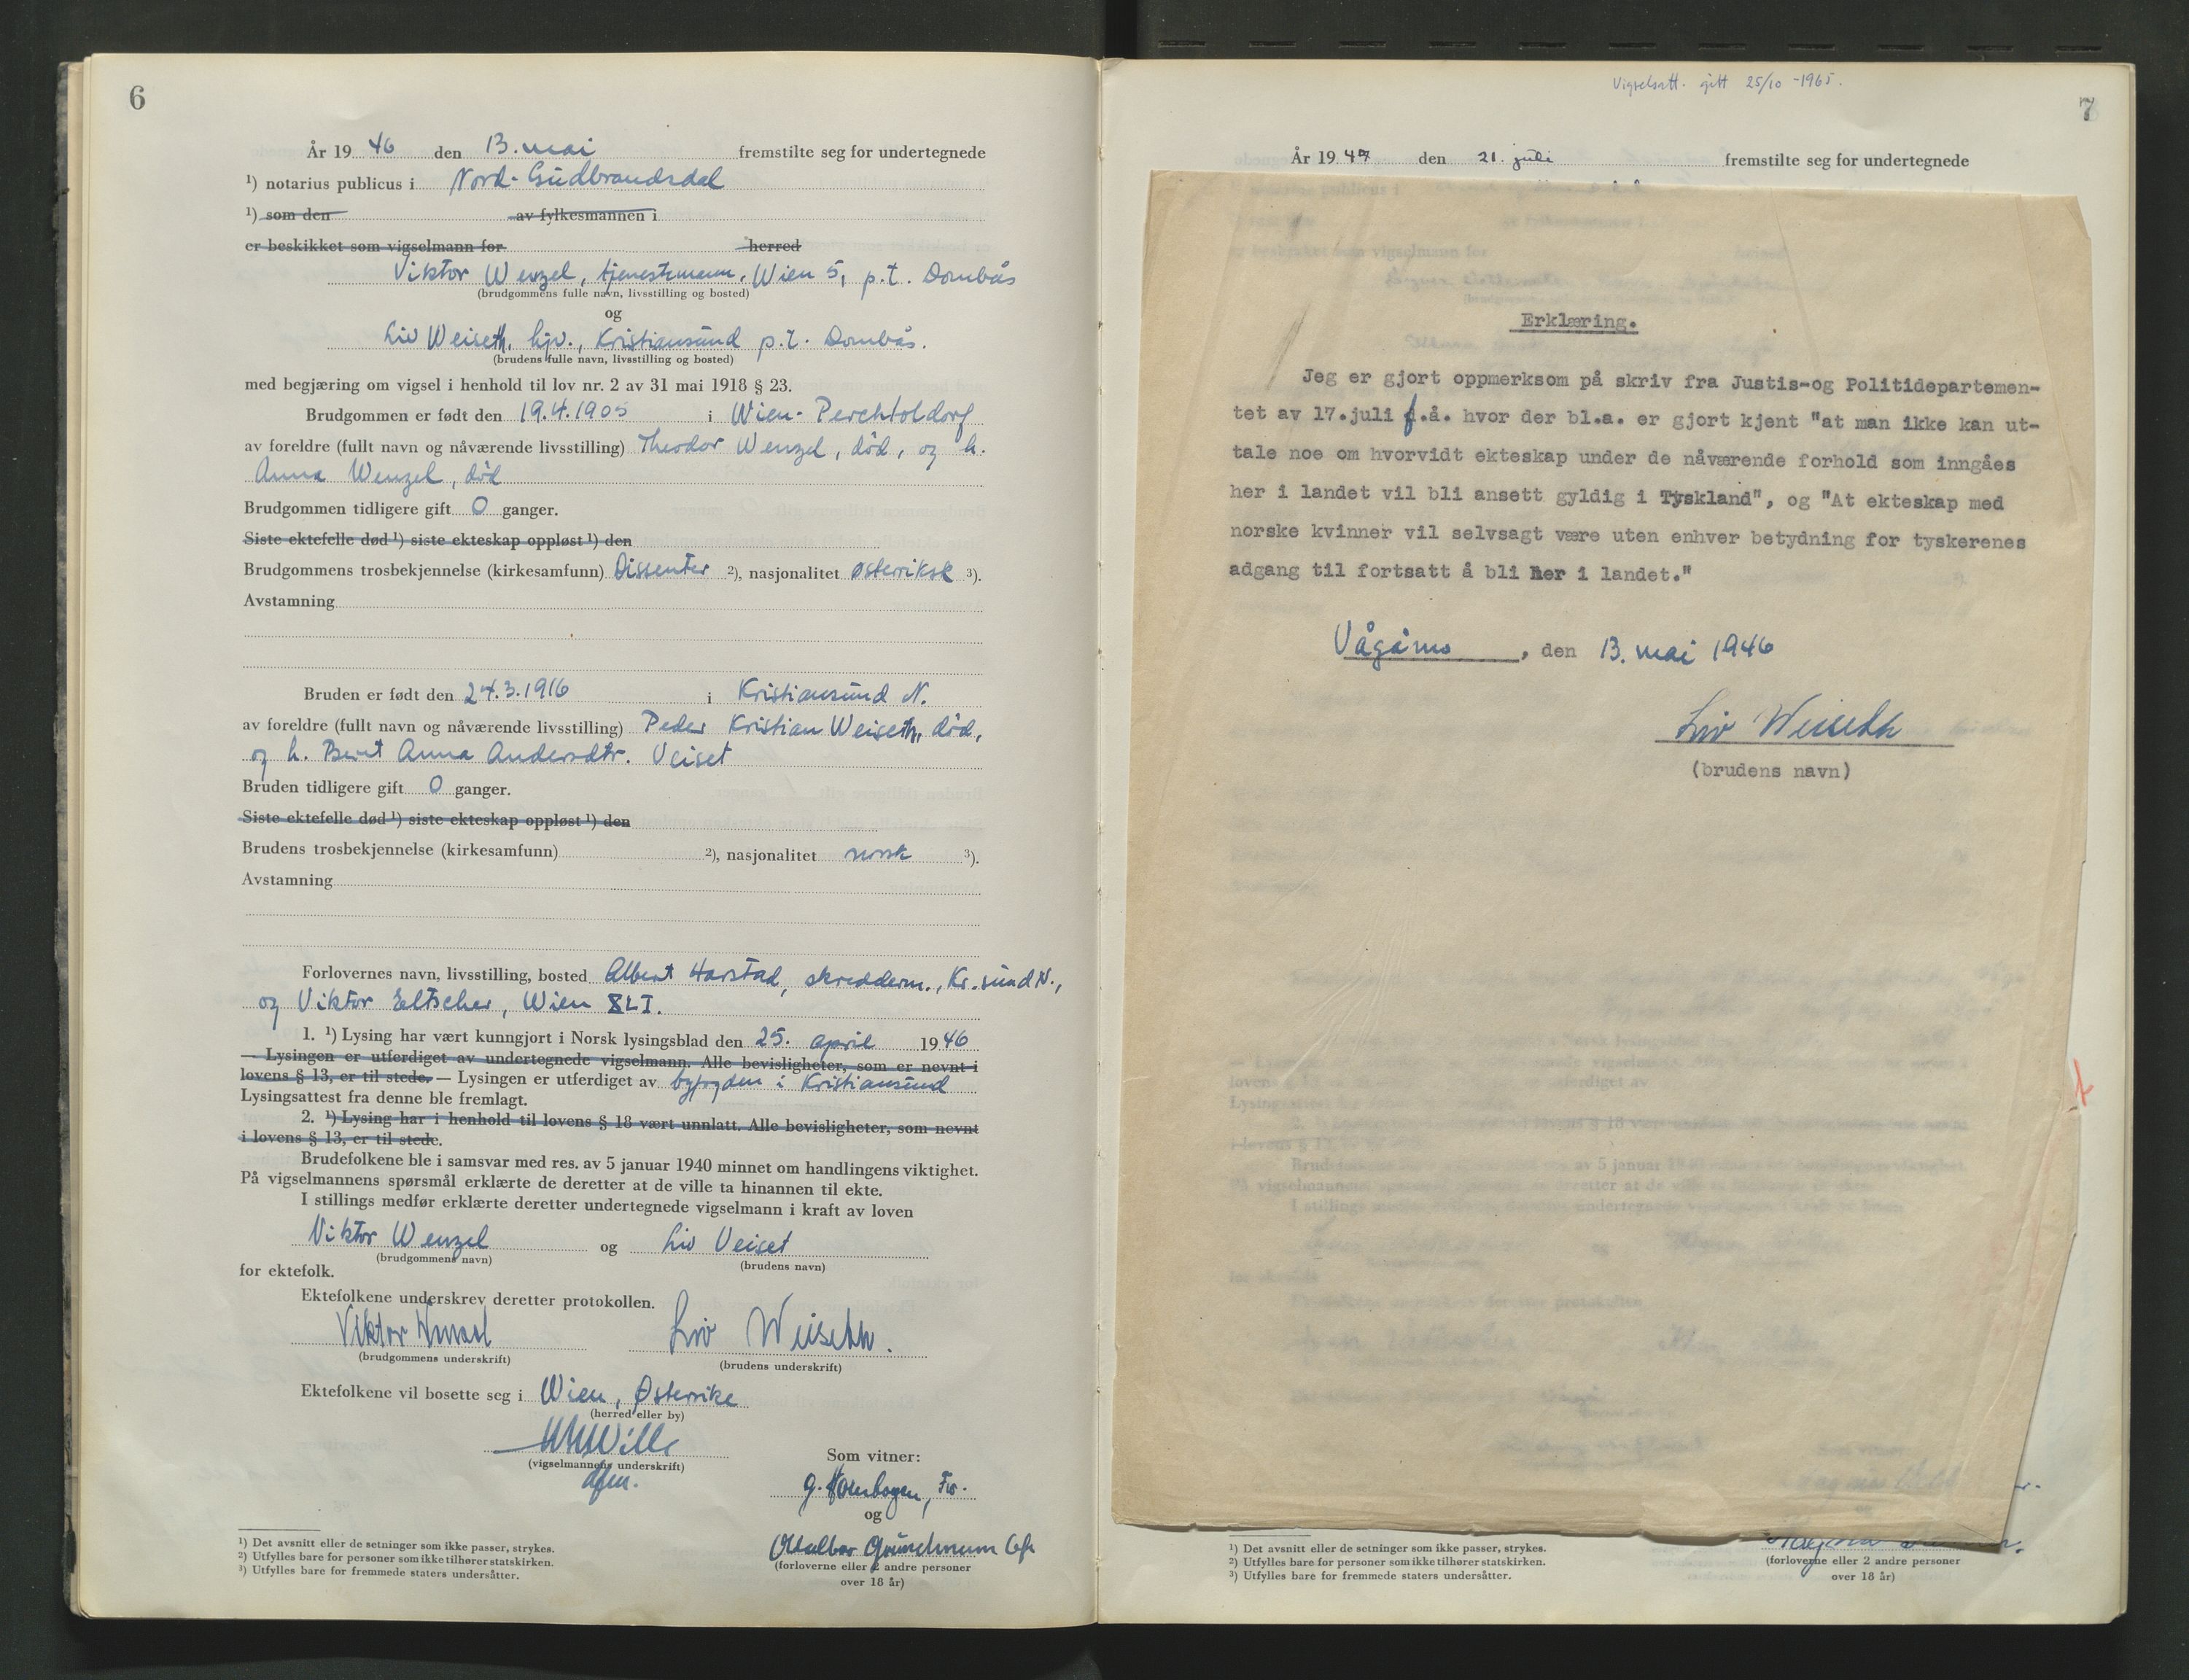 6
År 19 46 den 13. mai fremstilte seg for undertegnede
¹) notarius publicus i Nord-Gudbrandsdal
¹) som den av fylkesmannen i
er beskikket som vigselmann for herred
Viktor Wenzel, tjenestemann, Wien 5, p.t. Dombås
(brudgommens fulle navn, livsstilling og bosted)
og
Liv Weiseth, hjv., Kristiansund p.t. Dombås.
(brudens fulle navn, livsstilling og bosted)
med begjæring om vigsel i henhold til lov nr. 2 av 31 mai 1918 § 23.
Brudgommen er født den 19.4.1905 i Wien-Perchtoldorf
av foreldre (fullt navn og nåværende livsstilling) Theodor Wenzel, død, og h.
Anna Wenzel, død
Brudgommen tidligere gift 0 ganger.
Siste ektefelle død ¹) siste ekteskap oppløst ¹) den
Brudgommens trosbekjennelse (kirkesamfunn) Dissenter ²), nasjonalitet østeriksk ³).
Avstamning
Bruden er født den 24.3.1916 i Kristiansund N.
av foreldre (fullt navn og nåværende livsstilling) Peder Kristian Weiseth, død,
og h. Berit Anna Andersdtr. Veiset
Bruden tidligere gift 0 ganger.
Siste ektefelle død ¹) siste ekteskap oppløst ¹) den
Brudens trosbekjennelse (kirkesamfunn) ²), nasjonalitet norsk ³).
Avstamning
Forlovernes navn, livsstilling, bosted Albert Harstad, skredderm., Kr.sund N.,
og Viktor Eeltscher, Wien XLI.
1. ¹) Lysing har vært kunngjort i Norsk lysingsblad den 25. april 1946
— Lysingen er utferdiget av undertegnede vigselmann. Alle bevisligheter, som er nevnt i
lovens § 13, er til stede. — Lysingen er utferdiget av byfogden i Kristiansund
Lysingsattest fra denne ble fremlagt.
2. ¹) Lysing har i henhold til lovens § 18 vært unnlatt. Alle bevisligheter, som nevnt
i lovens § 13, er til stede.
Brudefolkene ble i samsvar med res. av 5 januar 1940 minnet om handlingens viktighet.
På vigselmannens spørsmål erklærte de deretter at de ville ta hinannen til ekte.
I stillings medfør erklærte deretter undertegnede vigselmann i kraft av loven
Viktor Wenzel og Liv Veiset
(brudgommens navn) (brudens navn)
for ektefolk.
Ektefolkene underskrev deretter protokollen.
Viktor Wenzel Liv Weiseth.
(brudgommens underskrift) (brudens underskrift)
Ektefolkene vil bosette seg i Wien, Østerrike
(herred eller by)
(vigselmannens underskrift)
Som vitner:
og
(forloverne eller 2 andre personer
over 18 år)
¹) Det avsnitt eller de setninger som ikke passer, strykes.
²) Utfylles bare for personer som ikke tilhører statskirken.
³) Utfylles bare for fremmede staters undersåtter.
Vigselsatt. gitt 25/10 -1965.
7
År 19 47 den 21. juli fremstilte seg for undertegnede
Erklæring.
Jeg er gjort oppmerksom på skriv fra Justis-og Politidepartemen-
tet av 17.juli f.å. hvor der bl.a. er gjort kjent "at man ikke kan ut-
tale noe om hvorvidt ekteskap under de nåværende forhold som inngåes
her i landet vil bli ansett gyldig i Tyskland", og "At ekteskap med
norske kvinner vil selvsagt være uten enhver betydning for tyskerenes
adgang til fortsatt å bli her i landet."
Vågåmo, den 13. mai 1946
Liv Weiseth
(brudens navn)
¹) Det avsnitt eller de setninger som ikke passer, strykes.
²) Utfylles bare for personer som ikke tilhører statskirken.
³) Utfylles bare for fremmede staters undersåtter.
(forloverne eller 2 andre personer
over 18 år)